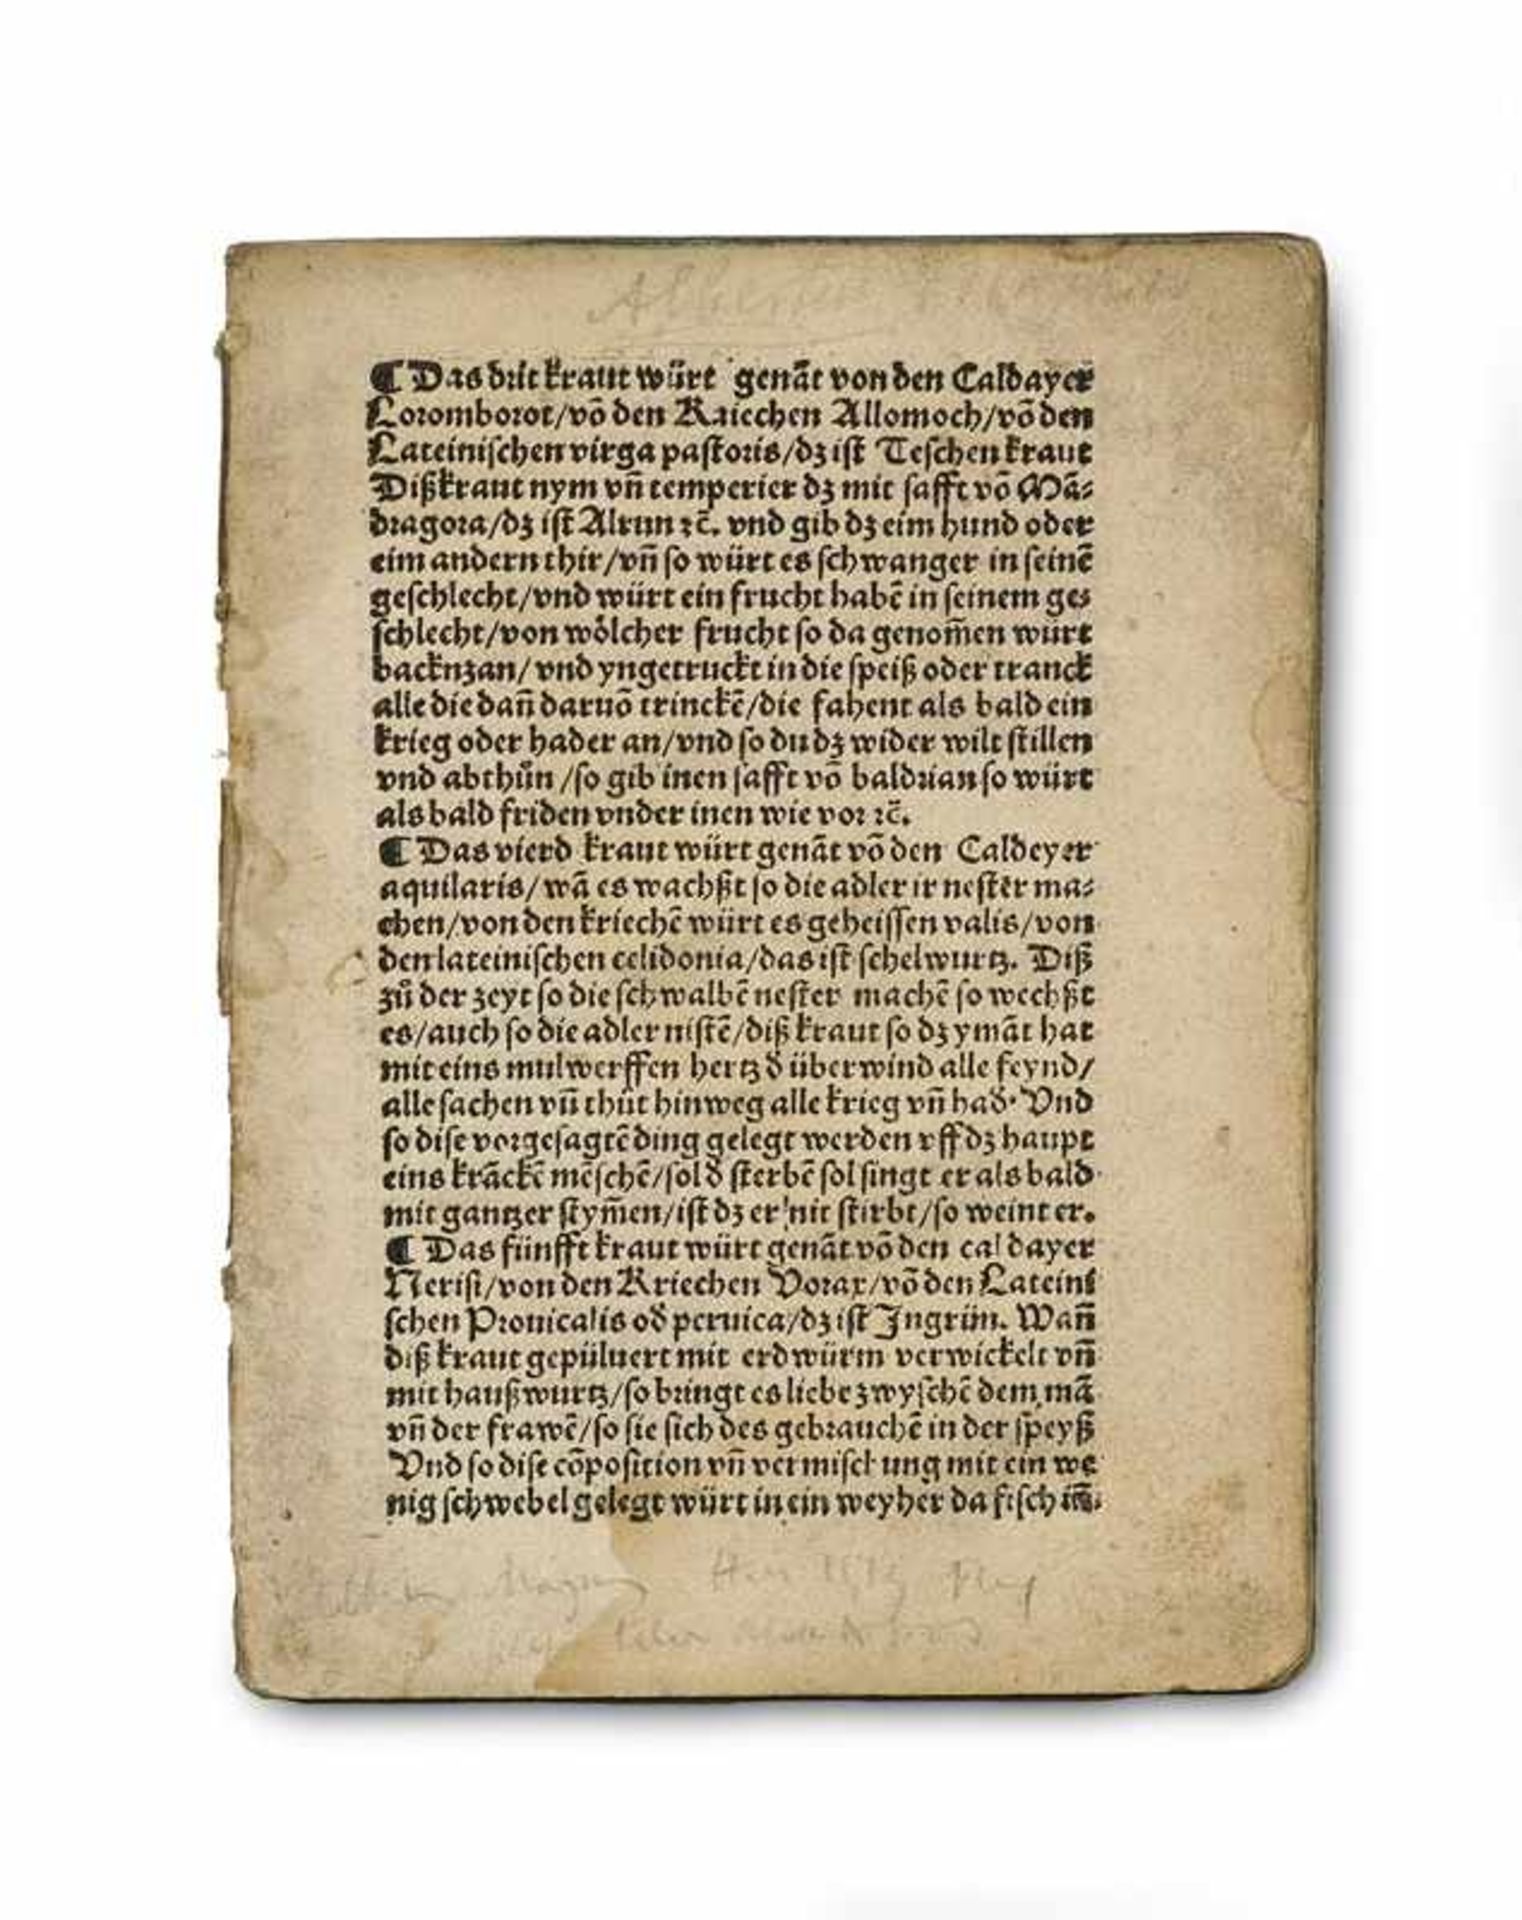 Albertus
¶ Das drit kraut würt genãt von den Caldayer
Loromborot/võ den Kriechen Allomoch/võ den
Lateinischen virga pastoris/dz ist Teschen kraut
Dißkraut nym vñ temperier dz mit safft võ Mã⸗
dragora/dz ist Alrun ⁊c̃. vnd gib dz eim hund oder
eim andern thir/vñ so würt es schwanger in seinẽ
geschlecht/vnd würt ein frucht habẽ in seinem ge⸗
schlecht/von woͤlcher frucht so da genom̃en würt
backnzan/vnd yngetruckt in die speiß oder tranck
alle die dañ daruõ trinckẽ/die fahent als bald ein
krieg oder hader an/vnd so du dz wider wilt stillen
vnd abthuͦn/so gib inen safft võ baldrian so würt
als bald friden vnder inen wie vor ⁊c̃.
¶ Das vierd kraut würt genãt võ den Caldeyer
aquilaris/wã es wachßt so die adler ir nester ma⸗
chen/von den kriechẽ würt es geheissen valis/von
den lateinischen celidonia/das ist schelwurtz. Diß
zuͦ der zeyt so die schwalbẽ nester machẽ so wechßt
es/auch so die adler nistẽ/diß kraut so dz ymãt hat
mit eins mulwerffen hertz d̕ überwind alle feynd/
alle sachen vñ thuͦt hinweg alle krieg vñ had̕. Vnd
so dise vorgesagtẽ ding gelegt werden vff dz haupt
eins krãckẽ mẽschẽ/sol d̕ sterbẽ so singt er als bald
mit gantzer stym̃en/ist dz er nit stirbt/so weint er.
¶ Das fünfft kraut würt genãt võ den caldayer
Nerisi/von den Kriechen Vorax/võ den Lateini
schen Prouicalis od̕ peruica/dz ist Ingrün. Wañ
diß kraut gepüluert mit erdwürm verwickelt vñ
mit haußwurtz/so bringt es liebe zwyschẽ dem mã
vñ der frawẽ/so sie sich des gebrauchẽ in der speyß
Vnd so dise cõposition vñ vermischung mit ein we
nig schwebel gelegt würt in ein weyher da fisch in̄.
Magnus